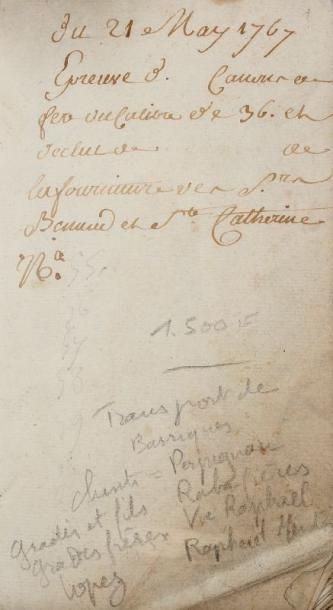 Du 21 e May 1767
Epreuve d. Canons de
fer du Calibre de 36. et
de
la fourniture de
et Ste Catherine
Na.
55.
56
57
58
9
1.500 F
Transport de
Barriques
clients = Perpignan
Gradis et fils Raba frères
Gradis frères Vve Raphael
Lopez Raphael